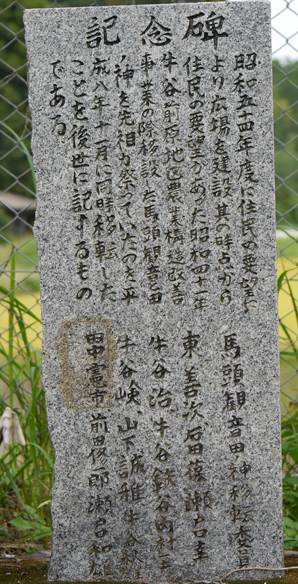 碑念記
昭和五十四年度に住民の要望に
より広場を建設其の時点から
住民の要望があった昭和四十二年
牛谷前原地区農業構造改善
事業の際移設した馬頭観音田
ノ神を先祖が祭っていたのを平
成八年十一月に同時移転した
ことを後世に記するもの
である
馬頭観音田神移転委員
東善次 石田篤 瀬古幸
牛谷治 牛谷鉄 谷内村
牛谷峡 山下誠雅 牛谷
田中憲市 前田俊一郎 瀬古和